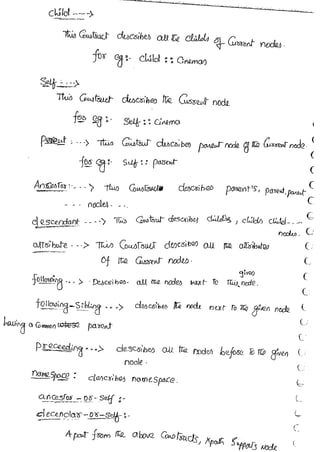 child ---->
This Construct describes all the childs of Current nodes.
for eg:- child :: Cinemas
Self :---->
This Construct describes the Current node
for eg:- Self :: Cinema
Parent :---> This Construct describes parent node of the Current node
for eg:- Self :: parent
Ancestor :---> This Construct describes parent's, parent, parent
--- nodes - -.
descendant ----> This Construct describes childs, childs child....
nodes.
attribute ---> This Construct describes all the attributes
Of the Current nodes.
following ---> Describes all the nodes next to This given node.
following-Sibling ---> describes the node next to the given node
having a Common parent
Preceeding ---> describes all the nodes before to the given
node.
namespace : describes namespace.
ancestor-or-self :-
decendar-or-self :-
Apart from the above Constructs, Xpath Supports node